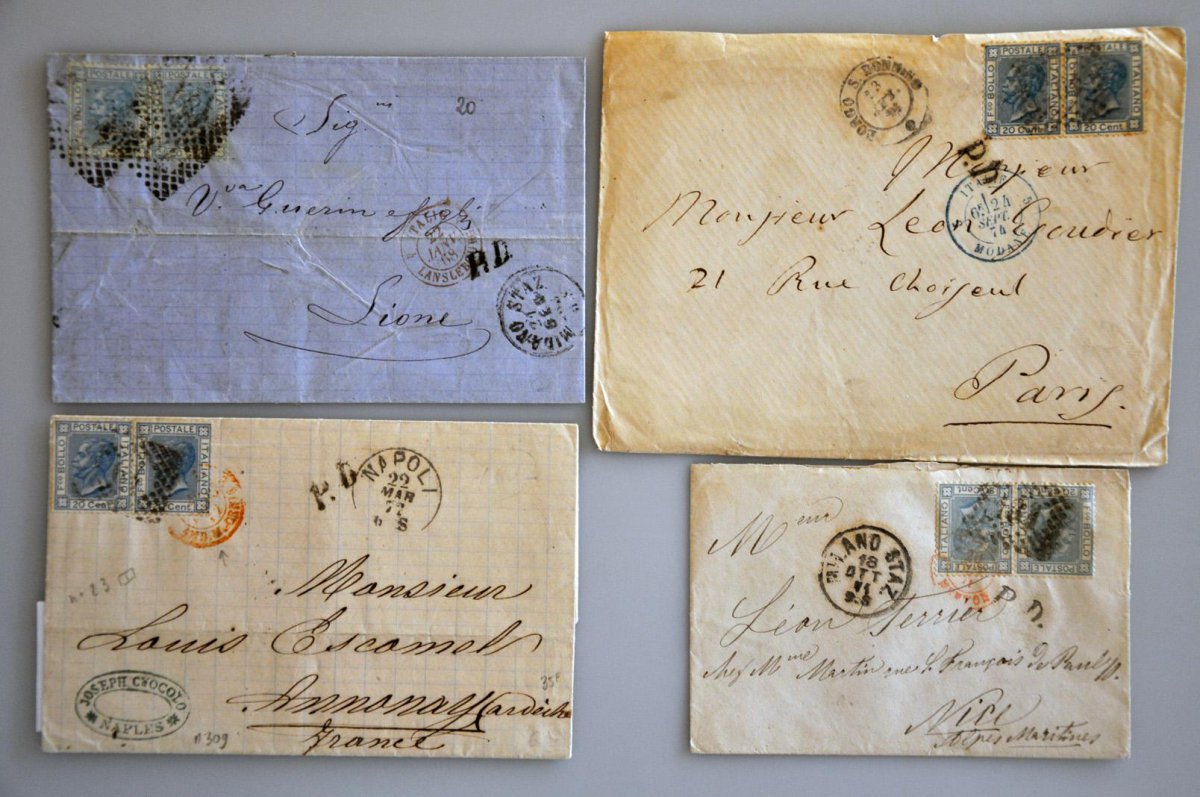 20
Sig.
Vva Guerin e figli
22
LANSLEBOURG
P.D.
MILANO STAZ.
Lione
POSTALE POSTALE
Fco BOLLO ITALIANO
20 Cent. 20 Cent.
BORGO S. DONNINO
P.D.
ITALIE
24
SEPT.
74
MODANE
Monsieur
Monsieur Leon Goudier
21 Rue Choiseul
Paris.
POSTALE POSTALE
Fco BOLLO ITALIANO ITALIANO
20 Cent. Cent.
P.D.
NAPOLI
22
MAR
Monsieur
Louis Escomel
Annonay (Ardèche
France
35F
no 23
JOSEPH CIOCOLO
NAPLES
ITALIANO Fco BOLLO
POSTALE POSTALE
MILANO STAZ.
18
OTT
71
P.D.
Mme
Léon Terrier
chez Mme Martin rue St François de Paul
Nice
Alpes Maritimes